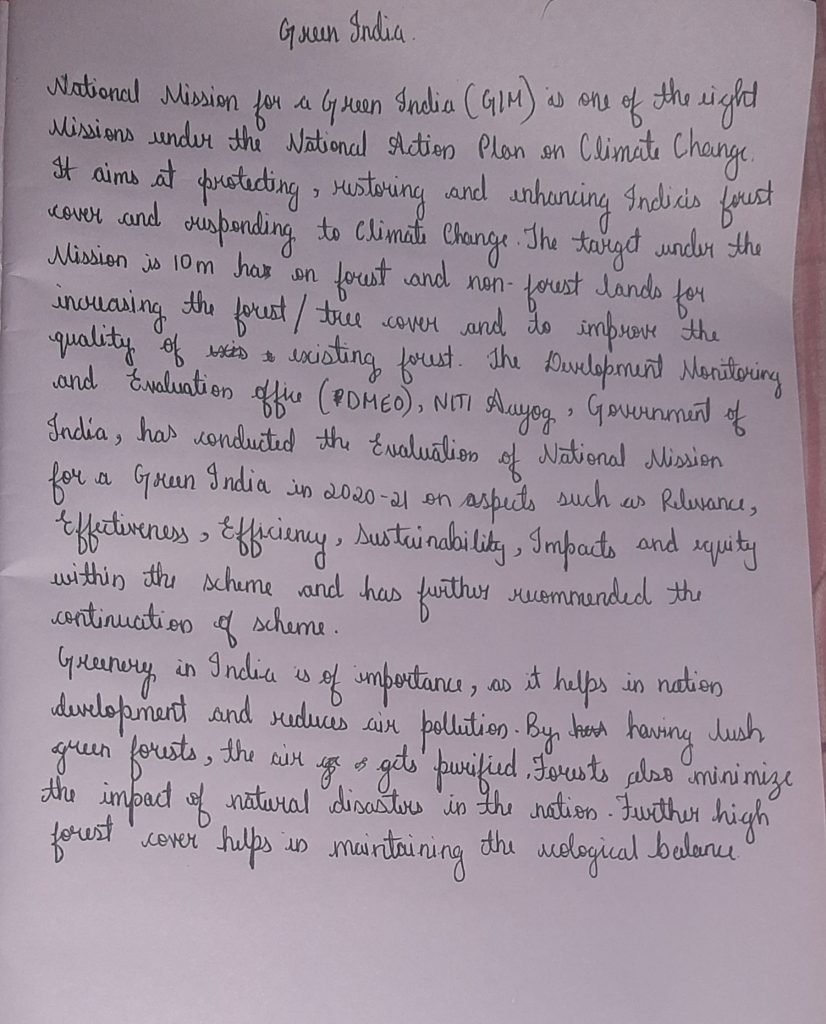 Green India.
National Mission for a Green India (GIM) is one of the eight
Missions under the National Action Plan on Climate Change.
It aims at protecting, restoring and enhancing India's forest
cover and responding to Climate Change. The target under the
Mission is 10m ha on forest and non-forest lands for
increasing the forest / tree cover and to improve the
quality of existing forest. The Development Monitoring
and Evaluation office (DMEO), NITI Aayog, Government of
India, has conducted the Evaluation of National Mission
for a Green India in 2020-21 on aspects such as Relevance,
Effectiveness, Efficiency, Sustainability, Impacts and equity
within the scheme and has further recommended the
continuation of scheme.
Greenery in India is of importance, as it helps in nation
development and reduces air pollution. By having lush
green forests, the air gets purified. Forests also minimize
the impact of natural disasters in the nation. Further high
forest cover helps in maintaining the ecological balance.